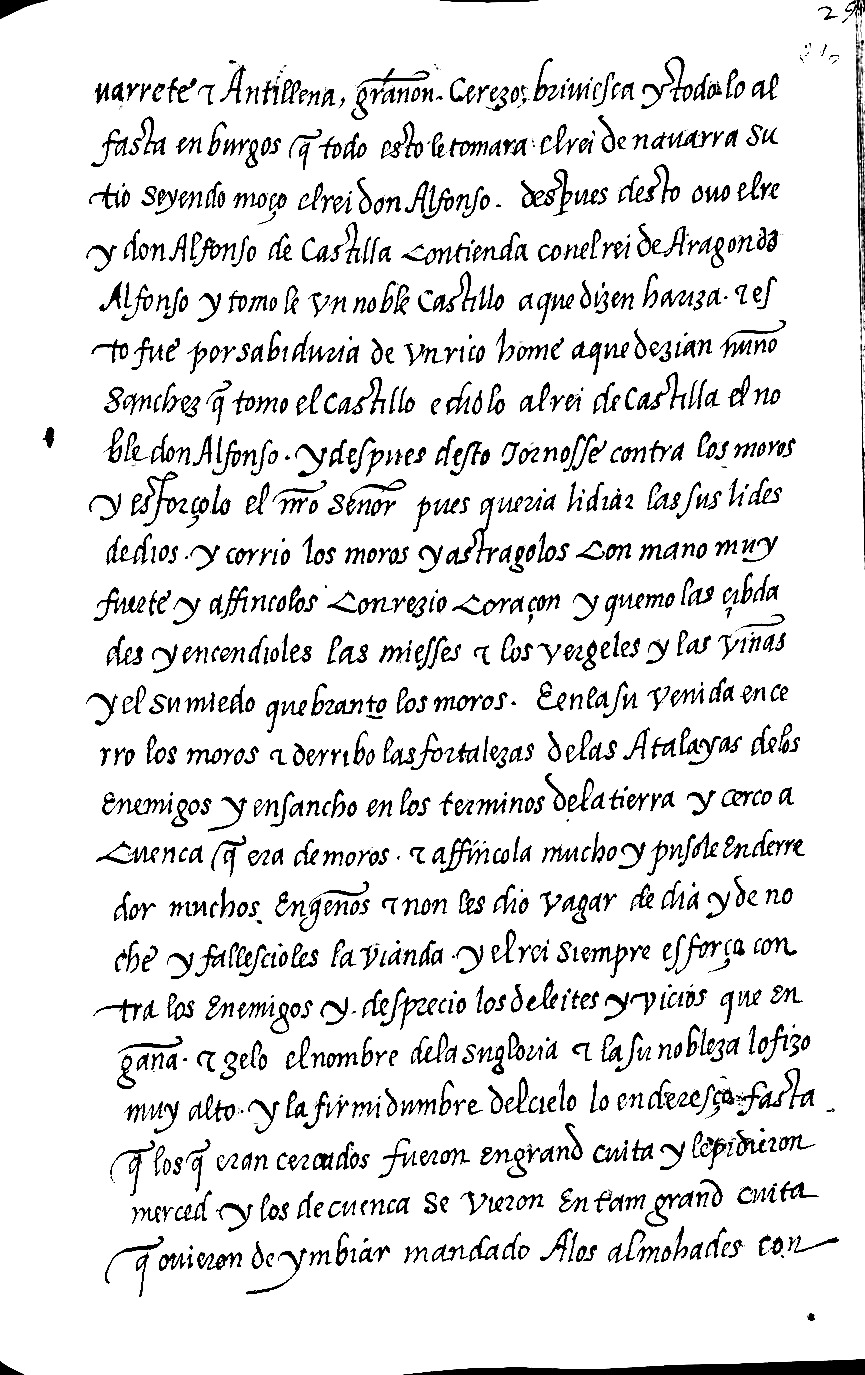 29
uarrete ⁊ Antillena, grañon. Cerezo, briuiesca y todo lo al
fasta en burgos q̃ todo esto le tomara el rei de nauarra su
tio seyendo moço el rei don Alfonso. despues desto ouo el re
y don Alfonso de Castilla contienda con el rei de Aragon do
Alfonso y tomo le vn noble Castillo a que dizen hariza. ⁊ es
to fue por sabiduria de vn rico home a que dezian nuño
Sanchez q̃ tomo el Castillo e diólo al rei de Castilla el no
ble don Alfonso. y despues desto Tornosse contra los moros
y esforçolo el nr̃o Señor pues queria lidiar las sus lides
de dios. y corrio los moros y astragolos con mano muy
fuerte y affincolos con rezio coraçon y quemo las çibda
des y encendioles las miesses ⁊ los vergeles y las viñas
y el su miedo quebranto los moros. E en la su venida ence
rro los moros ⁊ derribo las fortalezas de las Atalayas de los
Enemigos y ensancho en los terminos de la tierra y cerco a
Cuenca q̃ era de moros. ⁊ affincola mucho y pusole Enderre
dor muchos Engeños ⁊ non les dio vagar de dia y de no
che y fallescioles la vianda. y el rei siempre esforço con
tra los Enemigos y. desprecio los deleites y vicios que En
gaña. ⁊ zelo el nombre de la su gloria ⁊ la su nobleza lo fizo
muy alto. y la firmidumbre del cielo lo enderesço fasta
q̃ los q̃ eran cercados fueron en grand cuita y le pidieron
merced y los de cuenca se vieron En tam grand cuita
q̃ ouieron de ymbiar mandado A los almohades con